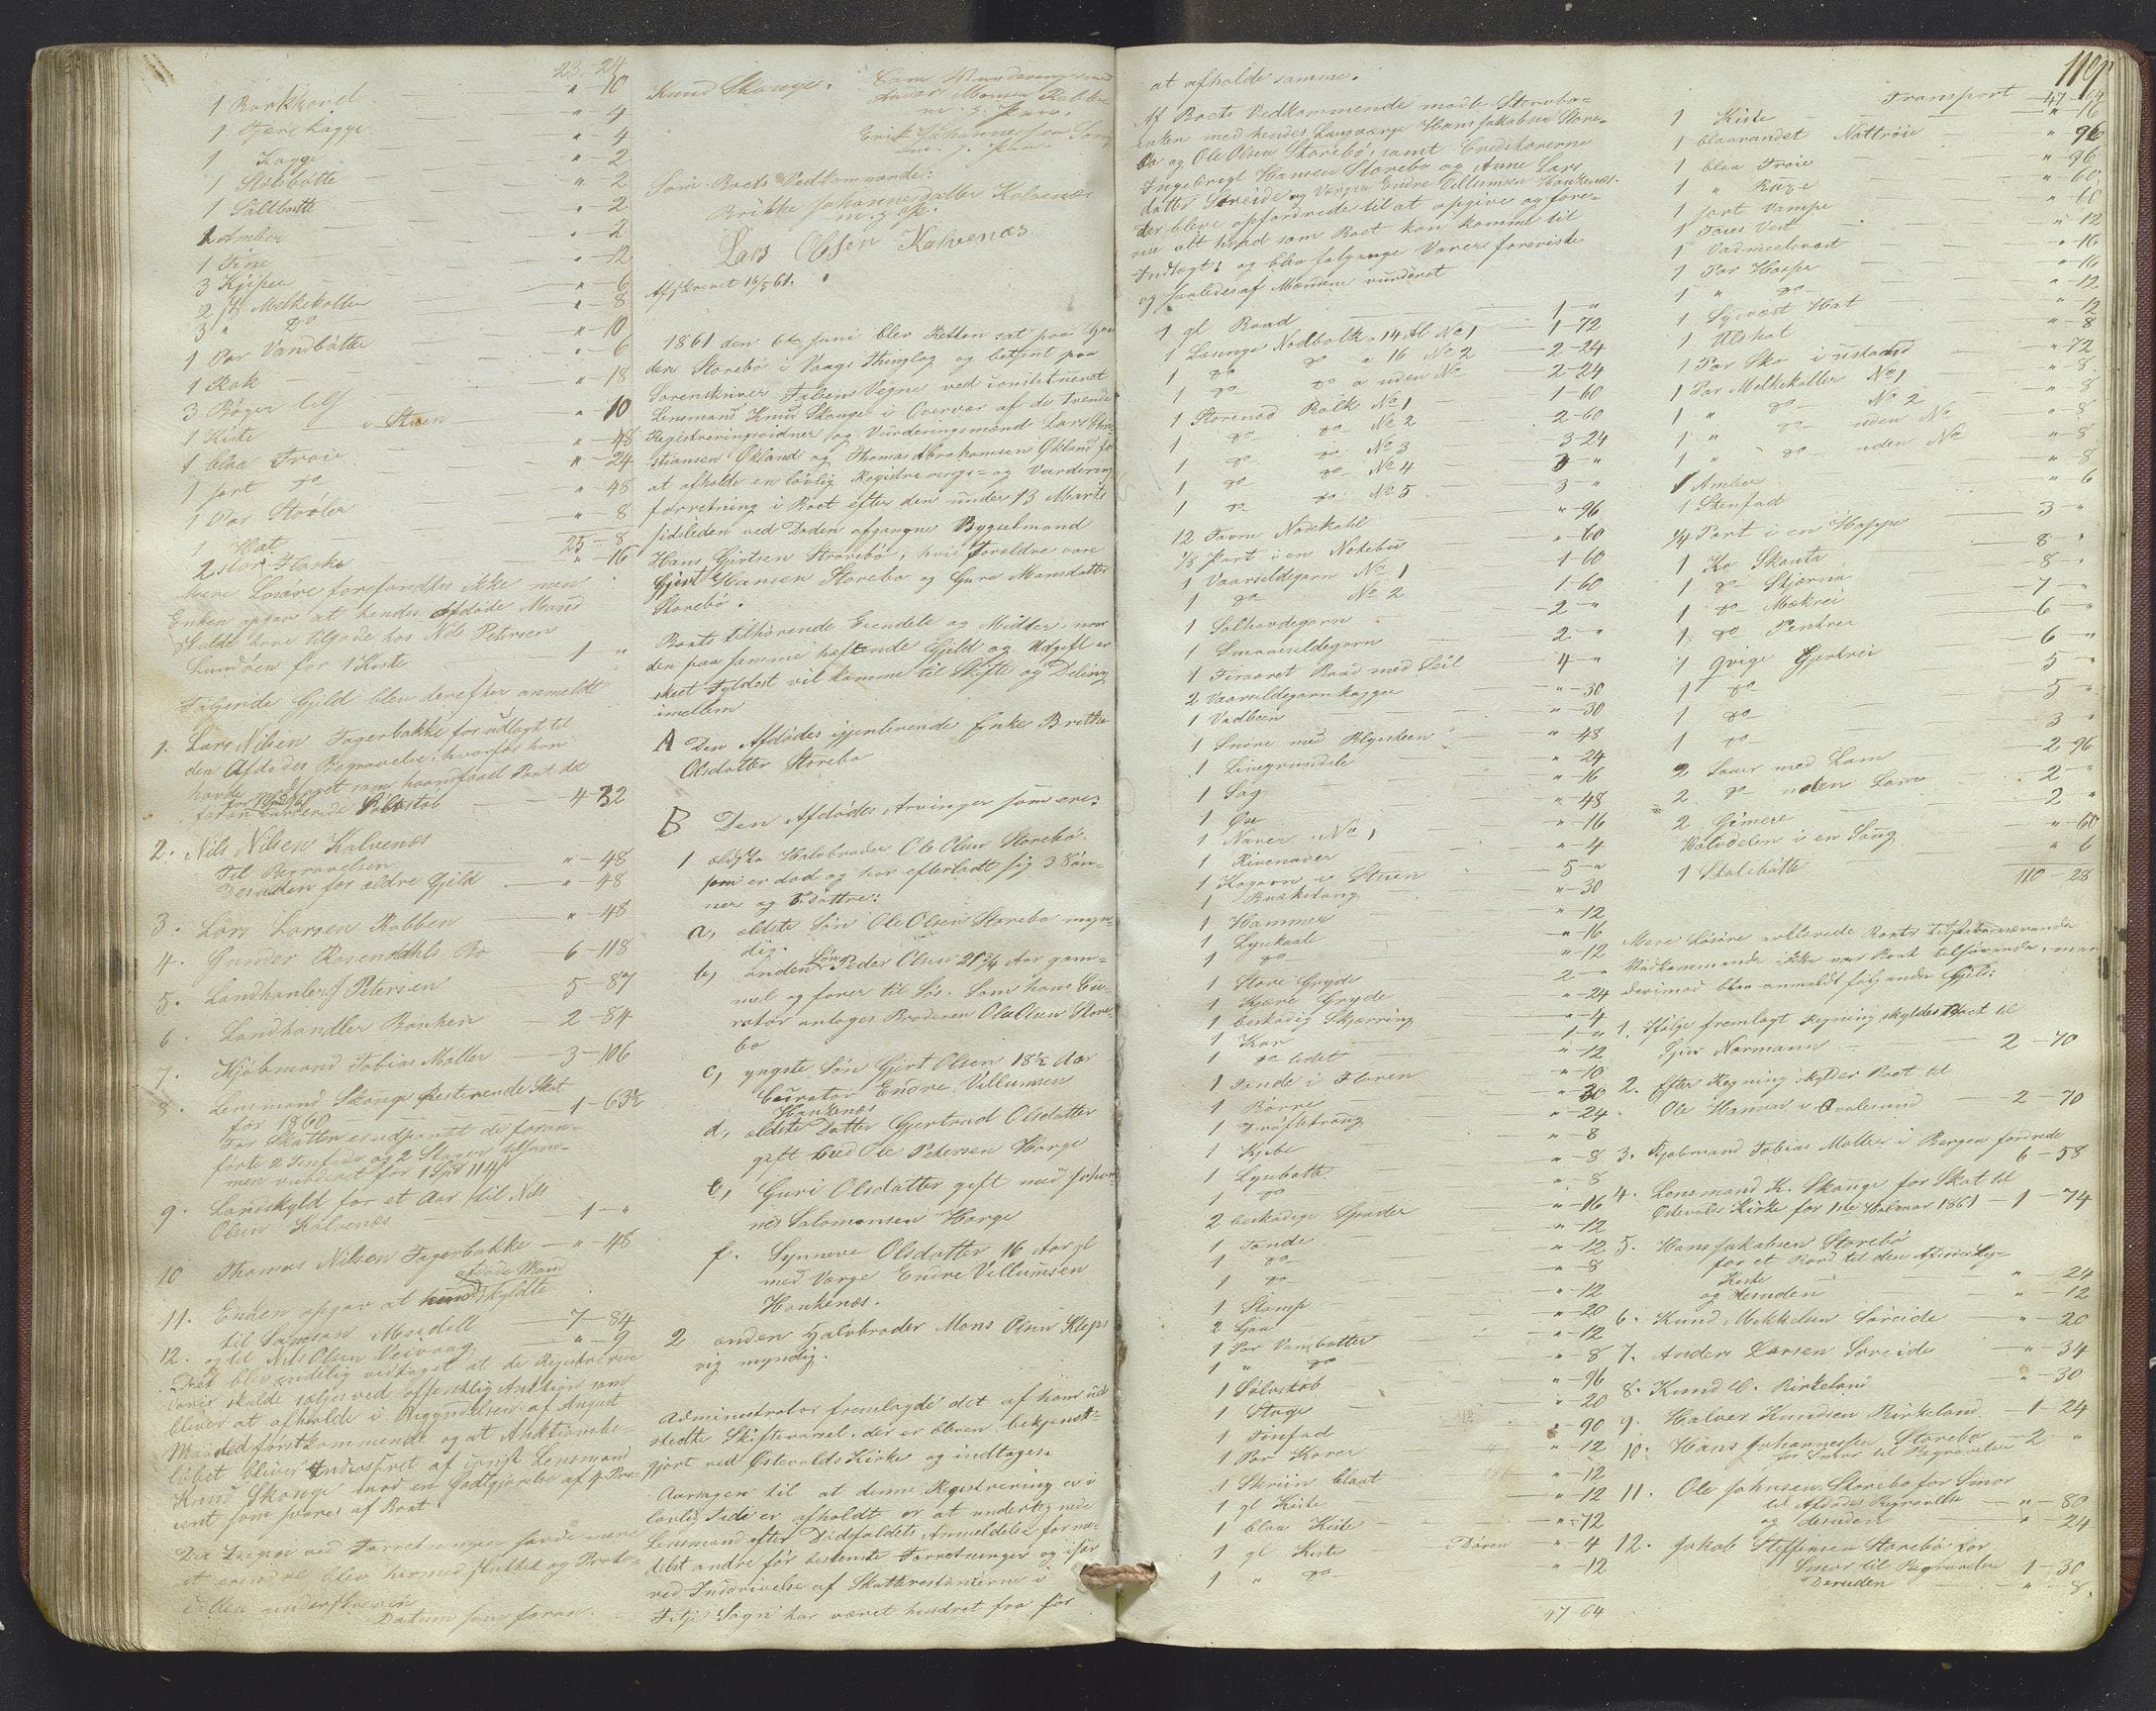 23-24
1 Barkhand - " - 10
1 Tjærekagge - " - 4
1 Kagge - " - 4
1 Stilebøtte - " - 2
1 Saltbøtte - " - 2
1 Amber - " - 2
1 Tine - " - 2
3 Kjiper - " - 12
2 st Melkekoller - " - 6
3 " do - " - 8
1 Par Vandbøtte - " - 10
1 Rok - " - 6
3 Bøger - " - 18
1 Kiste i Stuen - " - 10
1 blaa Trøie - " - 48
1 sort do - " - 24
1 Par Støvler - " - 48
1 Hat - " - 8
25 - 8
2 Stor Stærke - " - 16
Mere Løsøre forefandtes ikke men
Enken opgav at hendes afdøde Mand
skulde have tilgode hos Nils Petersen
Lundøen for 1 Kiste 1 "
Følgende Gjeld blev derefter anmeldt
1. Lars Nilsen Fagerbakke for udlagt til
den Afdødes Begravelse, hvorfor han
havde modtaget som haandfaaet Pant det
foran vurderede Sølvstøb 4-32
2. Nils Nilsen Kalvenæs
Til Begravelsen " - 48
Desuden for ældre Gjeld " - 48
3. Lars Larsen Rabben " - 48
4. Gunder Rosendahls Bo 6-118
5. Landhandler J Petersen 5-87
6. Landhandler Banken 2-84
7. Kjøbmand Tobias Møller 3-106
8. Lensmand Skouge Resterende Skat
for 1860 1-63½
For Skatten er udpantet de foran-
førte 2 Tinfade og 2 Stager tilsam-
men vurderet for 1 Spd 114 s
9. Landskyld for et Aar til Nils
Olsen Kalvenæs 1-"
10 Thomas Nilsen Fagerbakke " - 48
11. Enken opgav at hendes afdøde Mand skyldte
til Samson Møgedell 7-84
12. og til Nils Olsen Veivaag " - 9
Det blev endelig vedtaget at de Registrerede
Varer skulde sælges ved offentlig Auktion som
bliver at afholde i Begyndelsen af August
Maaned førstkommende og at Auktionsbe-
løbet bliver Inddrevet af const Lensmand
Knud Skouge mod en Godtgjørelse af 4 Pro-
cent som svares af Boet
Da Ingen ved Forretningen havde mere
at erindre blev hermed sluttet og Proto-
collen underskreven
Datum som foran.
Knud Skouge. Som Vurderingsmænd
Anders Monsen Rabben
m. p. Pen.
Erik Johannessen
m. p. Pen.
Som Boets Vedkommende:
Brithe Johannesdatter Kalvenæs
m. p. P.
Lars Olsen Kalvenæs
Afskrevet 16/5 61.
1861 den 6te Juni blev Retten sat paa Gaar-
den Storebø i Vaags Thinglag og betjent paa
Sorenskriver Falsens Vegne ved constitueret
Lensmand Knud Skouge i Overvær af de tvende
Registreringsvidner og Vurderingsmænd Lars Chri-
stiansen Økland og Thomas Abrahamsen Økland for
at afholde en lovlig Registrerings- og Vurderings
forretning i Boet efter den under 13 Marts
sidstleden ved Døden afgangne Bygselmand
Hans Gjertsen Storebø, hvis Forældre vare
Gjert Hansen Storebø og Guro Monsdatter
Storebø.
Boets tilhørende Eiendele og Midler, naar
den paa samme hæftende Gjeld og Udgift er
skeet Fyldest vil komme til Skifte og Deling
imellem
A Den Afdødes igjenlevende Enke Brithe
Olsdatter Storebø
B Den Afdødes Arvinger som ere:
1 ældste Halvbroder Ole Olsen Storebø
som er død og har efterladt sig 3 Søn-
ner og 3 døttre:
a, ældste Søn Ole Olsen Storebø myn-
dig.
b, anden Søn Peder Olsen 21¾ Aar gam-
mel og farer til Søs. Som hans Cu-
rator antages Broderen Ole Olsen Store-
bø
c, yngste Søn Gjert Olsen 18½ Aar
Curator Endre Villumsen
Haukenæs
d, ældste Datter Gjertrud Olsdatter
gift med Ole Petersen Horge
e, Guri Olsdatter gift med Johan-
nes Salomonsen Horge
f. Synneve Olsdatter 16 Aar gl
med Værge Endre Villumsen
Haukenæs.
2 anden Halvbroder Mons Olsen Kleps
vig myndig.
Administrator fremlagde det af ham ud-
stedte Skiftevarsel, der er bleven bekjendt-
gjort ved Østevolds Kirke og indtages.
Aarsagen til at denne Registrering ei i
lovlig Tide er afholdt er at undertegnede
Lensmand efter Dødsfaldets Anmeldelse forme-
delst andre før bestemte Forretninger og især
ved Inddrivelse af Skatterestanserne i
Fitje Sogn har været hindret fra før
119
at afholde samme.
Af Boets Vedkommende mødte Storebø-
enken med hendes Laugværge Hans Jakobsen Store-
bø og Ole Olsen Storebø, samt Creditorerne
Ingebrigt Hansen Storebø og Anne Lars
datter Søreide og Værgen Endre Villumsen Haukenæs.
der bleve opfordrede til at opgive og fore-
vise alt hvad som Boet kan komme til
Indtægt; og blev følgende Varer foreviste
og saaledes af Mændene vurderet
1 gl Baad 1-"
1 Læsunge Nodbolk a 14 Al No 1 1-72
1 do do a 16 No 2 2-24
1 do do a uden No 2-24
1 Storenod Bolk No 1 1-60
1 do do No 2 2-60
1 do do No 3 3-24
1 do do No 4 3-"
1 do do No 5 3-"
12 Favne Nodekabl " - 96
1/8 Part i en Nodebu " - 60
1 Vaarsildegarn No 1 1-60
1 do No 2 1-60
1 Solhovdegarn 2-"
1 Smaasildegarn 2-"
1 Firaaret Baad med Seil 4-"
2 Vaarsildegarnkagger " - 30
1 Vadbein " - 30
1 Snøre med Blysteen " - 48
1 Linegrundsle " - 24
1 Sag " - 16
1 Øxe " - 48
1 Naver No 1 " - 16
1 Rivenaver " - 4
1 Kogovn i Stuen 5-"
1 Brækstang " - 30
1 Hammer " - 12
1 Lynkaale " - 16
1 do " - 12
1 Store Gryde 2-"
1 Kjøre Gryde " - 24
1 beskadig Skjerring " - 4
1 Kar 1-"
1 do lidet " - 12
1 Tønde i Floren " - 10
1 Børre " - 20
1 Drøftetraug " - 24
1 Kjibe " - 8
1 Lynbøtte " - 8
1 do " - 8
2 beskadige Spader " - 16
1 Tønde " - 12
1 do " - 12
1 do " - 8
1 Stamp " - 12
2 Ljaa " - 20
1 Par Vandbøtter " - 12
1 " do " - 8
1 Sølvstøb " - 96
1 Stage " - 20
1 Tinfad " - 90
1 Par Karer " - 12
1 Skriin blaat " - 12
1 gl Kiste " - 12
1 blaa Kiste " - 72
1 gl Kiste Døren " - 4
1 " do " - 12
47-64
Transport 47-64
1 Kiste " - 16
1 blaarandet Nattrøie " - 96
1 blaa Trøie " - 96
1 " Buxe " - 60
1 sort Vampe " - 60
1 Føies Vest " - 12
1 Vadmelsvest " - 16
1 Par Hoser " - 16
1 " do " - 12
1 Sydvest Hat " - 12
1 Uldhat " - 8
1 Par Sko i ustand " - 72
1 Par Melkekoller No 1 " - 8
1 " do No 2 " - 8
1 " do uden No " - 8
1 " do uden No " - 8
1 Amber " - 8
1 Stenfad " - 6
1/4 Part i en Hoppe 3-"
1 Ko Skauta 8-"
1 do Stjerna 8-"
1 do Møkrei 7-"
1 do Penkrei 6-"
1 Qvige Gjertrei 6-"
1 do 5-"
1 do 5-"
1 do 3-"
2 Sauer med Lam 2-96
2 do uden Lam 2-"
2 Gimere 2-"
Halvdelen i en Saug " - 60
1 Stolebøtte " - 6
110-28
Mere Løsøre erklærede Boets tilstedeværende
Vedkommende ikke var Boet tilhørende, men
derimod blev anmeldt følgende Gjeld:
1. Ifølge fremlagt Regning skyldes Boet til
Sjur Normann 2-70
2. Efter Regning skylder Boet til
Ole Hansen i Qvalesund 2-70
3. Kjøbmand Tobias Møller i Bergen fordrede
6-58
4. Lensmand K. Skouge for Skat til
Østevolds Kirke for 1ste Halvaar 1861 1-74
5. Hans Jakobsen Storebø
for et Bord til den Afdødes Lig-
Kiste " - 24
og desuden " - 12
6. Knud Mikkelsen Søreide " - 20
7. Anders Larsen Søreide " - 34
8. Knud E. Birkeland " - 30
9. Halver Knudsen Birkeland 1-24
10. Hans Johannessen Storebø
for Smør til Begravelse 2-"
11. Ole Johnsen Storebø for Smør
til Afdødes Begravelse " - 80
og desuden " - 24
12. Jakob Steffensen Storebø for
Smør til Begravelse 1-30
Desuden " - 8.